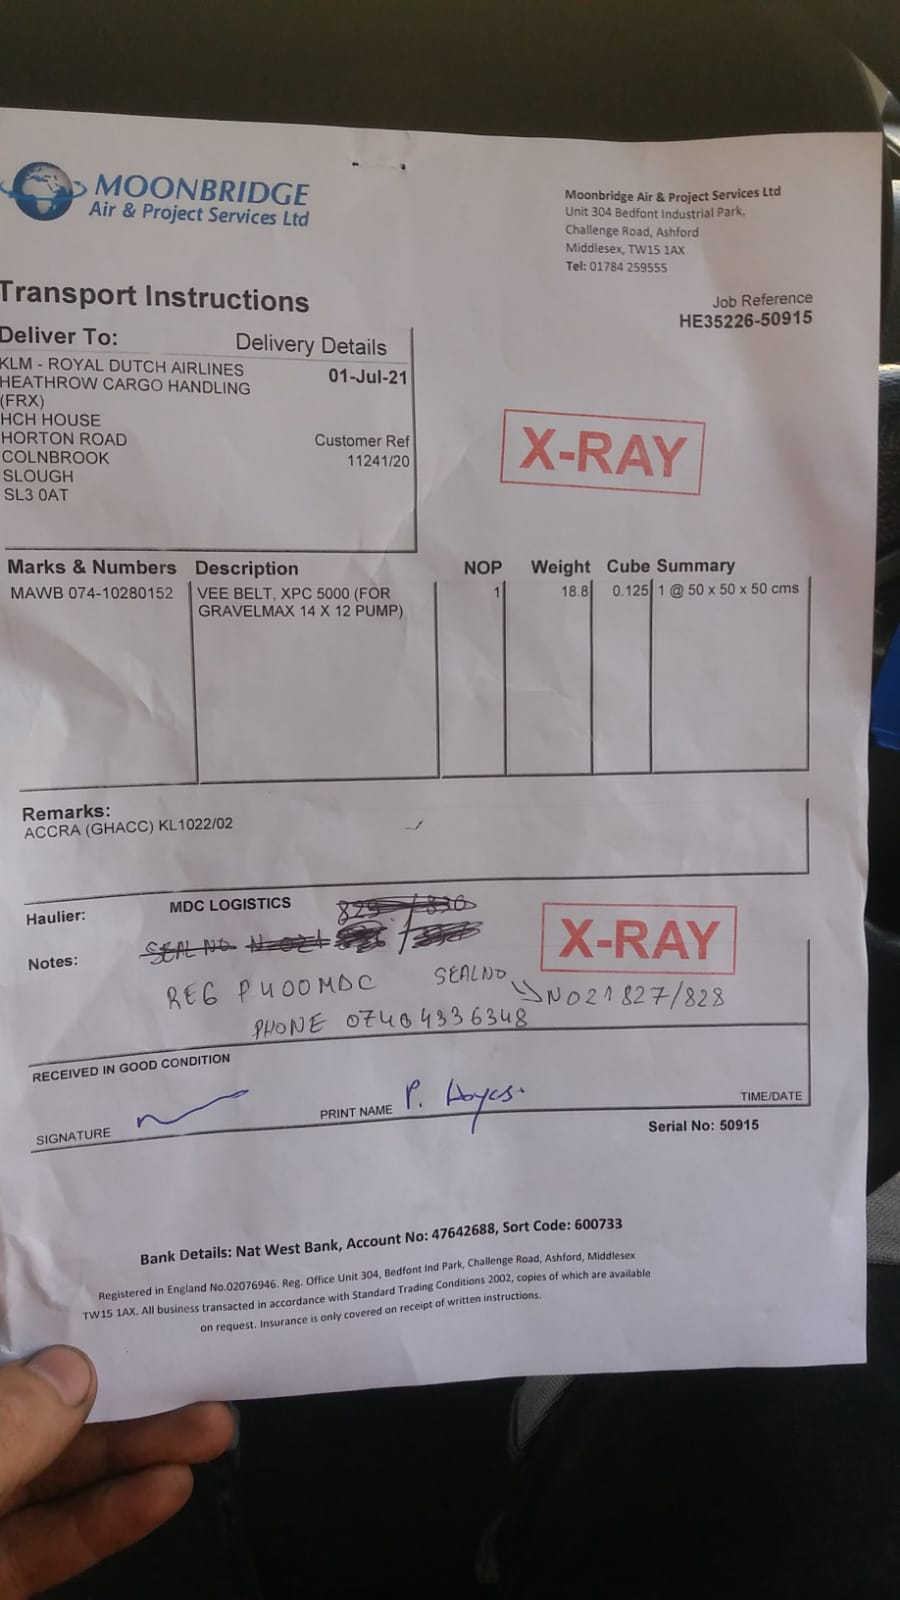 MOONBRIDGE
Air & Project Services Ltd
Moonbridge Air & Project Services Ltd
Unit 304 Bedfont Industrial Park,
Challenge Road, Ashford
Middlesex, TW15 1AX
Tel: 01784 259555
Transport Instructions
Job Reference
HE35226-50915
Deliver To:
KLM - ROYAL DUTCH AIRLINES
HEATHROW CARGO HANDLING
(FRX)
HCH HOUSE
HORTON ROAD
COLNBROOK
SLOUGH
SL3 0AT
Delivery Details
01-Jul-21
Customer Ref
11241/20
X-RAY
Marks & Numbers Description NOP Weight Cube Summary
MAWB 074-10280152 VEE BELT, XPC 5000 (FOR 1 18.8 0.125 1 @ 50 x 50 x 50 cms
GRAVELMAX 14 X 12 PUMP)
Remarks:
ACCRA (GHACC) KL1022/02
Haulier: MDC LOGISTICS 829/830
Notes: SEAL NO N021
X-RAY
REG P400MDC SEALNO
NO21827/828
PHONE 07404336348
RECEIVED IN GOOD CONDITION
SIGNATURE
PRINT NAME P. Hayes.
TIME/DATE
Serial No: 50915
Bank Details: Nat West Bank, Account No: 47642688, Sort Code: 600733
Registered in England No.02076946. Reg. Office Unit 304, Bedfont Ind Park, Challenge Road, Ashford, Middlesex
TW15 1AX. All business transacted in accordance with Standard Trading Conditions 2002, copies of which are available
on request. Insurance is only covered on receipt of written instructions.